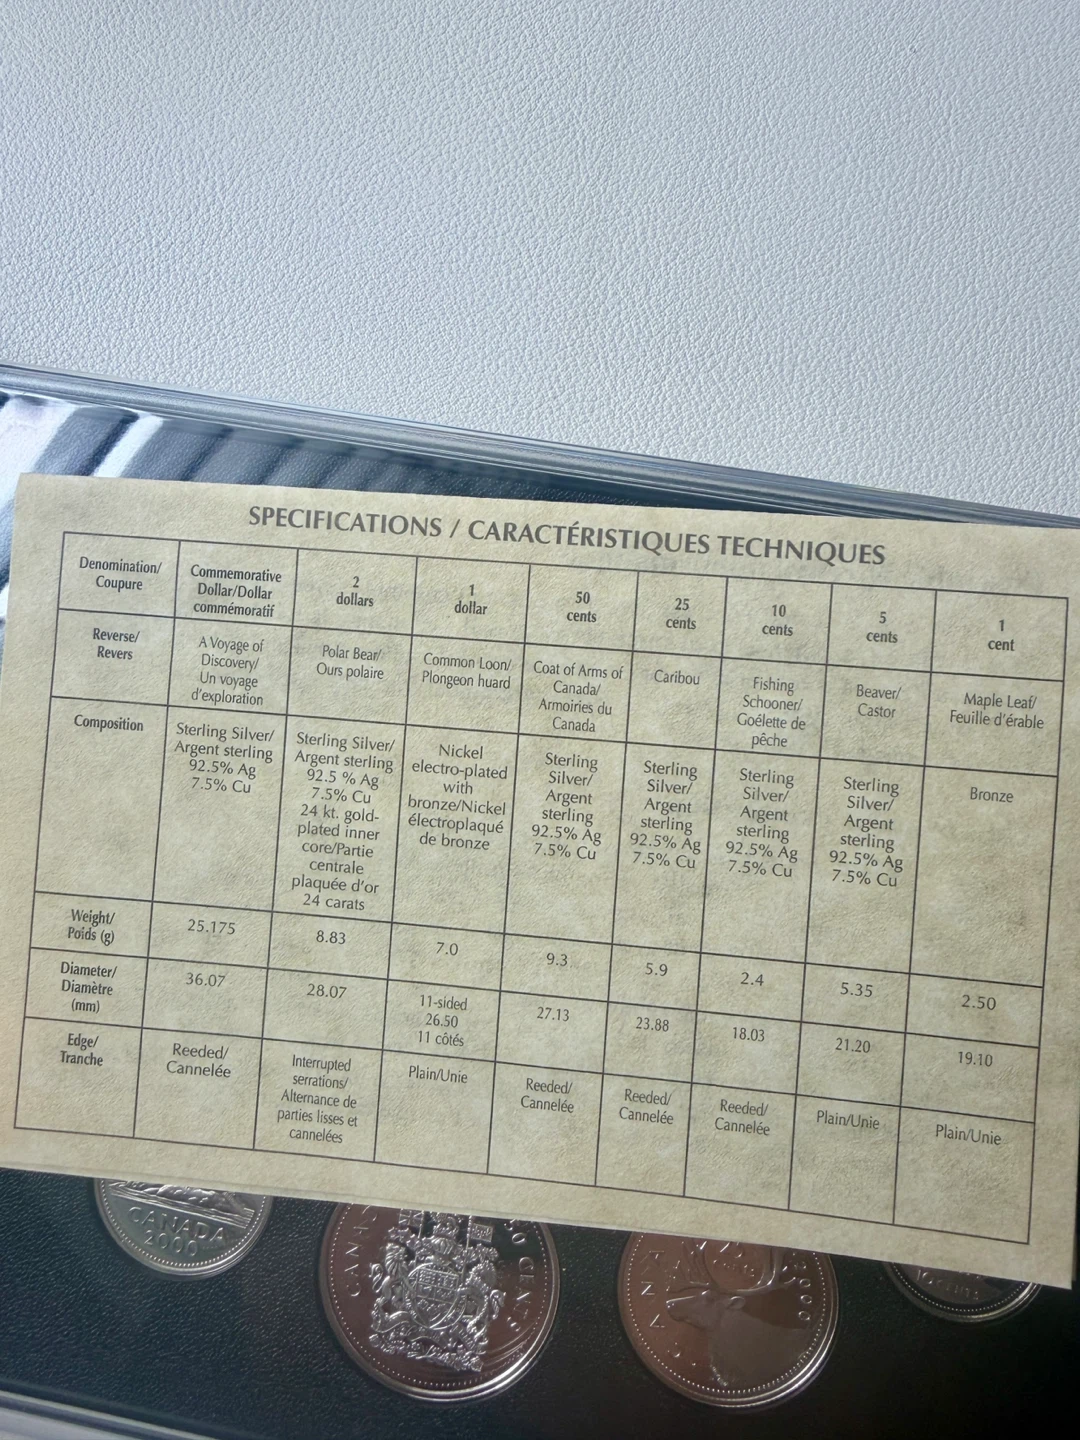 SPECIFICATIONS / CARACTÉRISTIQUES TECHNIQUES
Denomination/
Coupure
Commemorative
Dollar/Dollar
commémoratif
2
dollars
1
dollar
50
cents
25
cents
10
cents
5
cents
1
cent
Reverse/
Revers
A Voyage of
Discovery/
Un voyage
d'exploration
Polar Bear/
Ours polaire
Common Loon/
Plongeon huard
Coat of Arms of
Canada/
Armoiries du
Canada
Caribou
Fishing
Schooner/
Goélette de
pêche
Beaver/
Castor
Maple Leaf/
Feuille d'érable
Composition
Sterling Silver/
Argent sterling
92.5% Ag
7.5% Cu
Sterling Silver/
Argent sterling
92.5 % Ag
7.5% Cu
24 kt. gold-
plated inner
core/Partie
centrale
plaquée d'or
24 carats
Nickel
electro-plated
with
bronze/Nickel
électroplaqué
de bronze
Sterling
Silver/
Argent
sterling
92.5% Ag
7.5% Cu
Sterling
Silver/
Argent
sterling
92.5% Ag
7.5% Cu
Sterling
Silver/
Argent
sterling
92.5% Ag
7.5% Cu
Sterling
Silver/
Argent
sterling
92.5% Ag
7.5% Cu
Bronze
Weight/
Poids (g)
25.175
8.83
7.0
9.3
5.9
2.4
5.35
2.50
Diameter/
Diamètre
(mm)
36.07
28.07
11-sided
26.50
11 côtés
27.13
23.88
18.03
21.20
19.10
Edge/
Tranche
Reeded/
Cannelée
Interrupted
serrations/
Alternance de
parties lisses et
cannelées
Plain/Unie
Reeded/
Cannelée
Reeded/
Cannelée
Reeded/
Cannelée
Plain/Unie
Plain/Unie
CANADA
2000
CENTS
2000